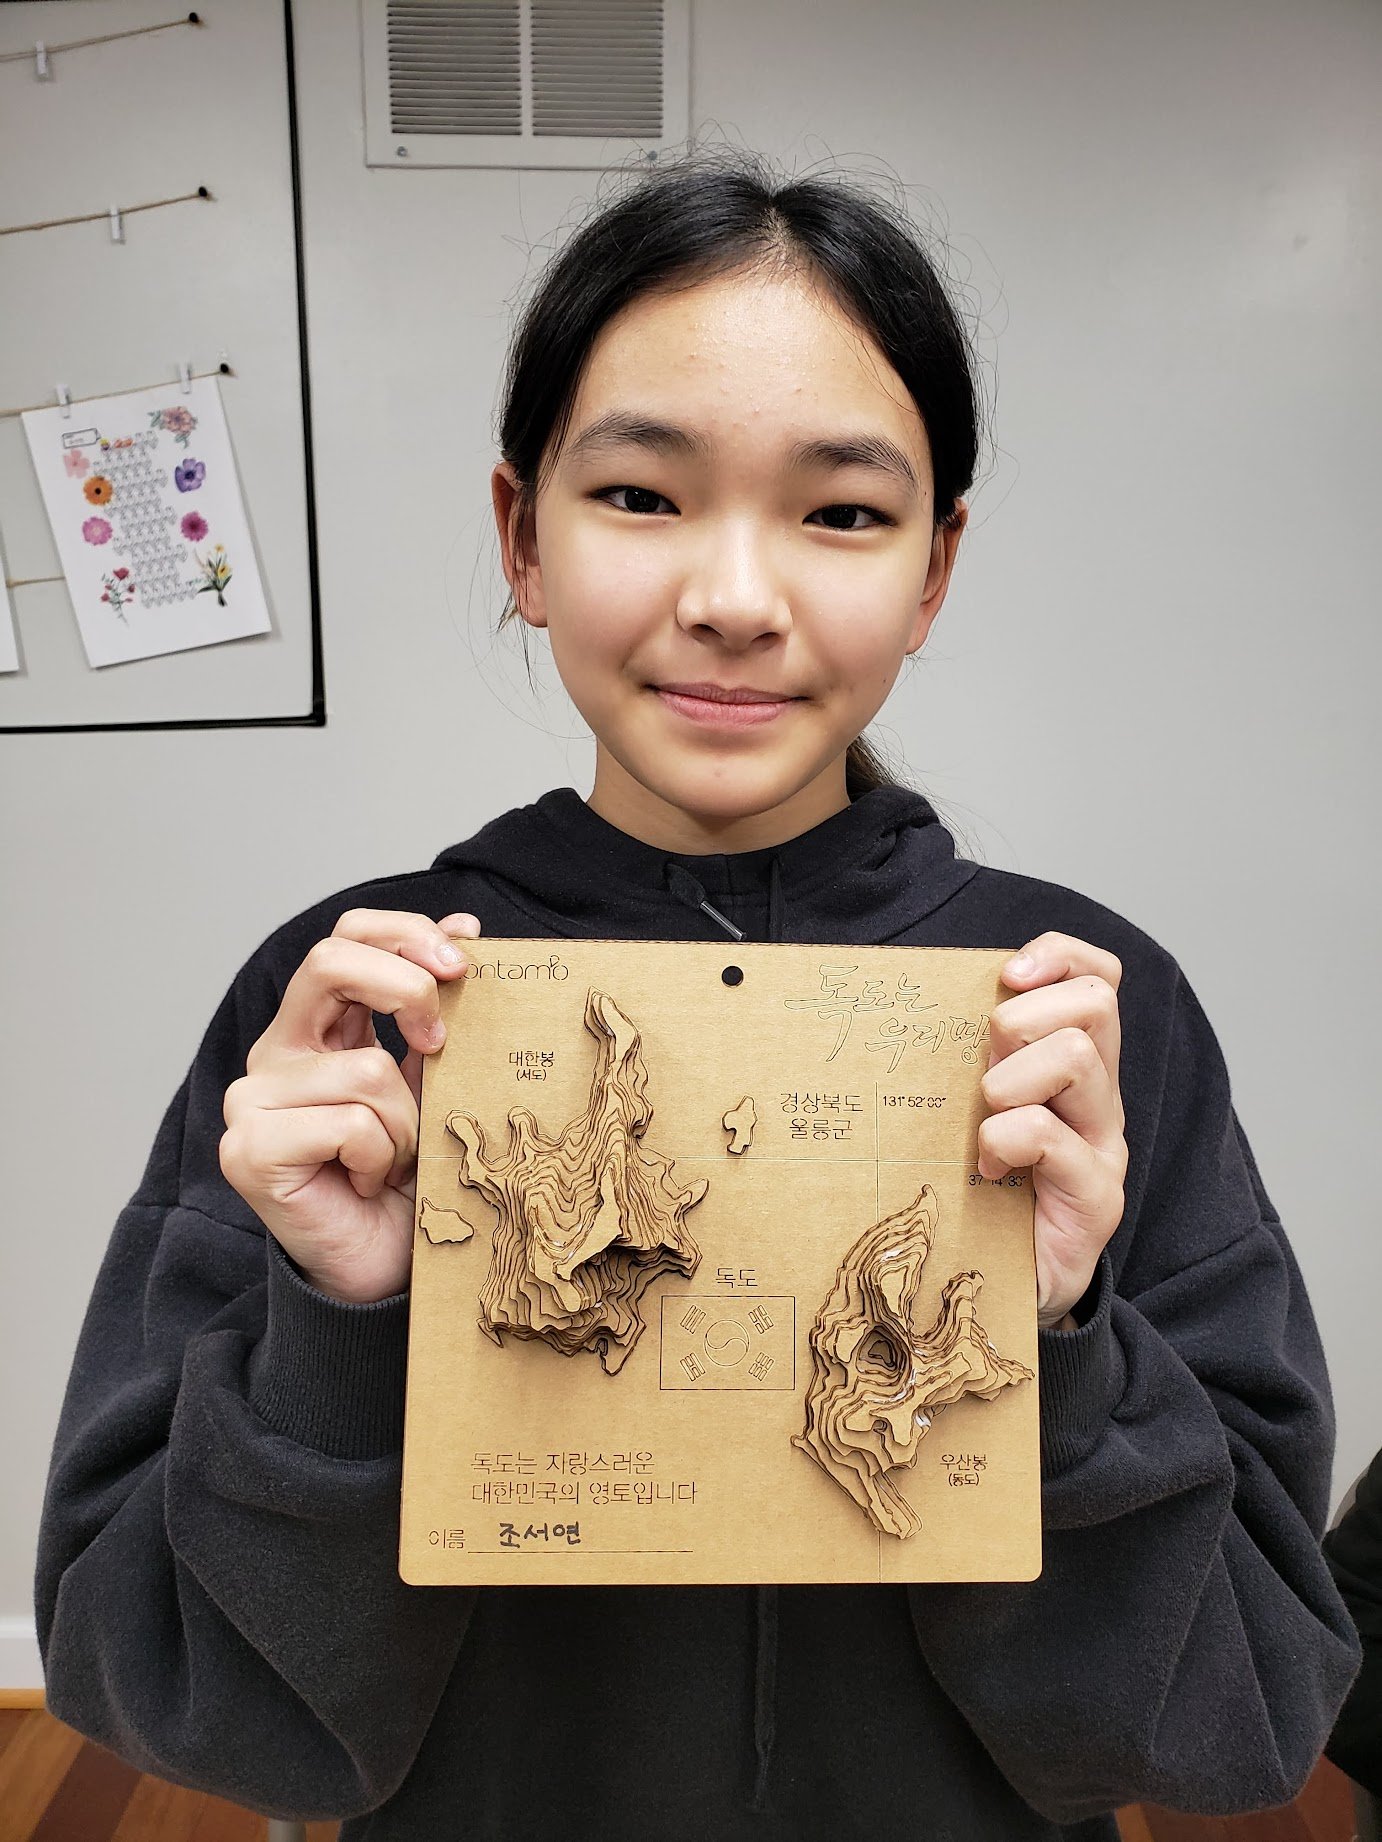 ontamo
독도는
우리땅
대한봉
(서도)
경상북도
울릉군
131° 52′ 00″
37° 14′ 30″
독도
우산봉
(동도)
독도는 자랑스러운
대한민국의 영토입니다
이름 조서연